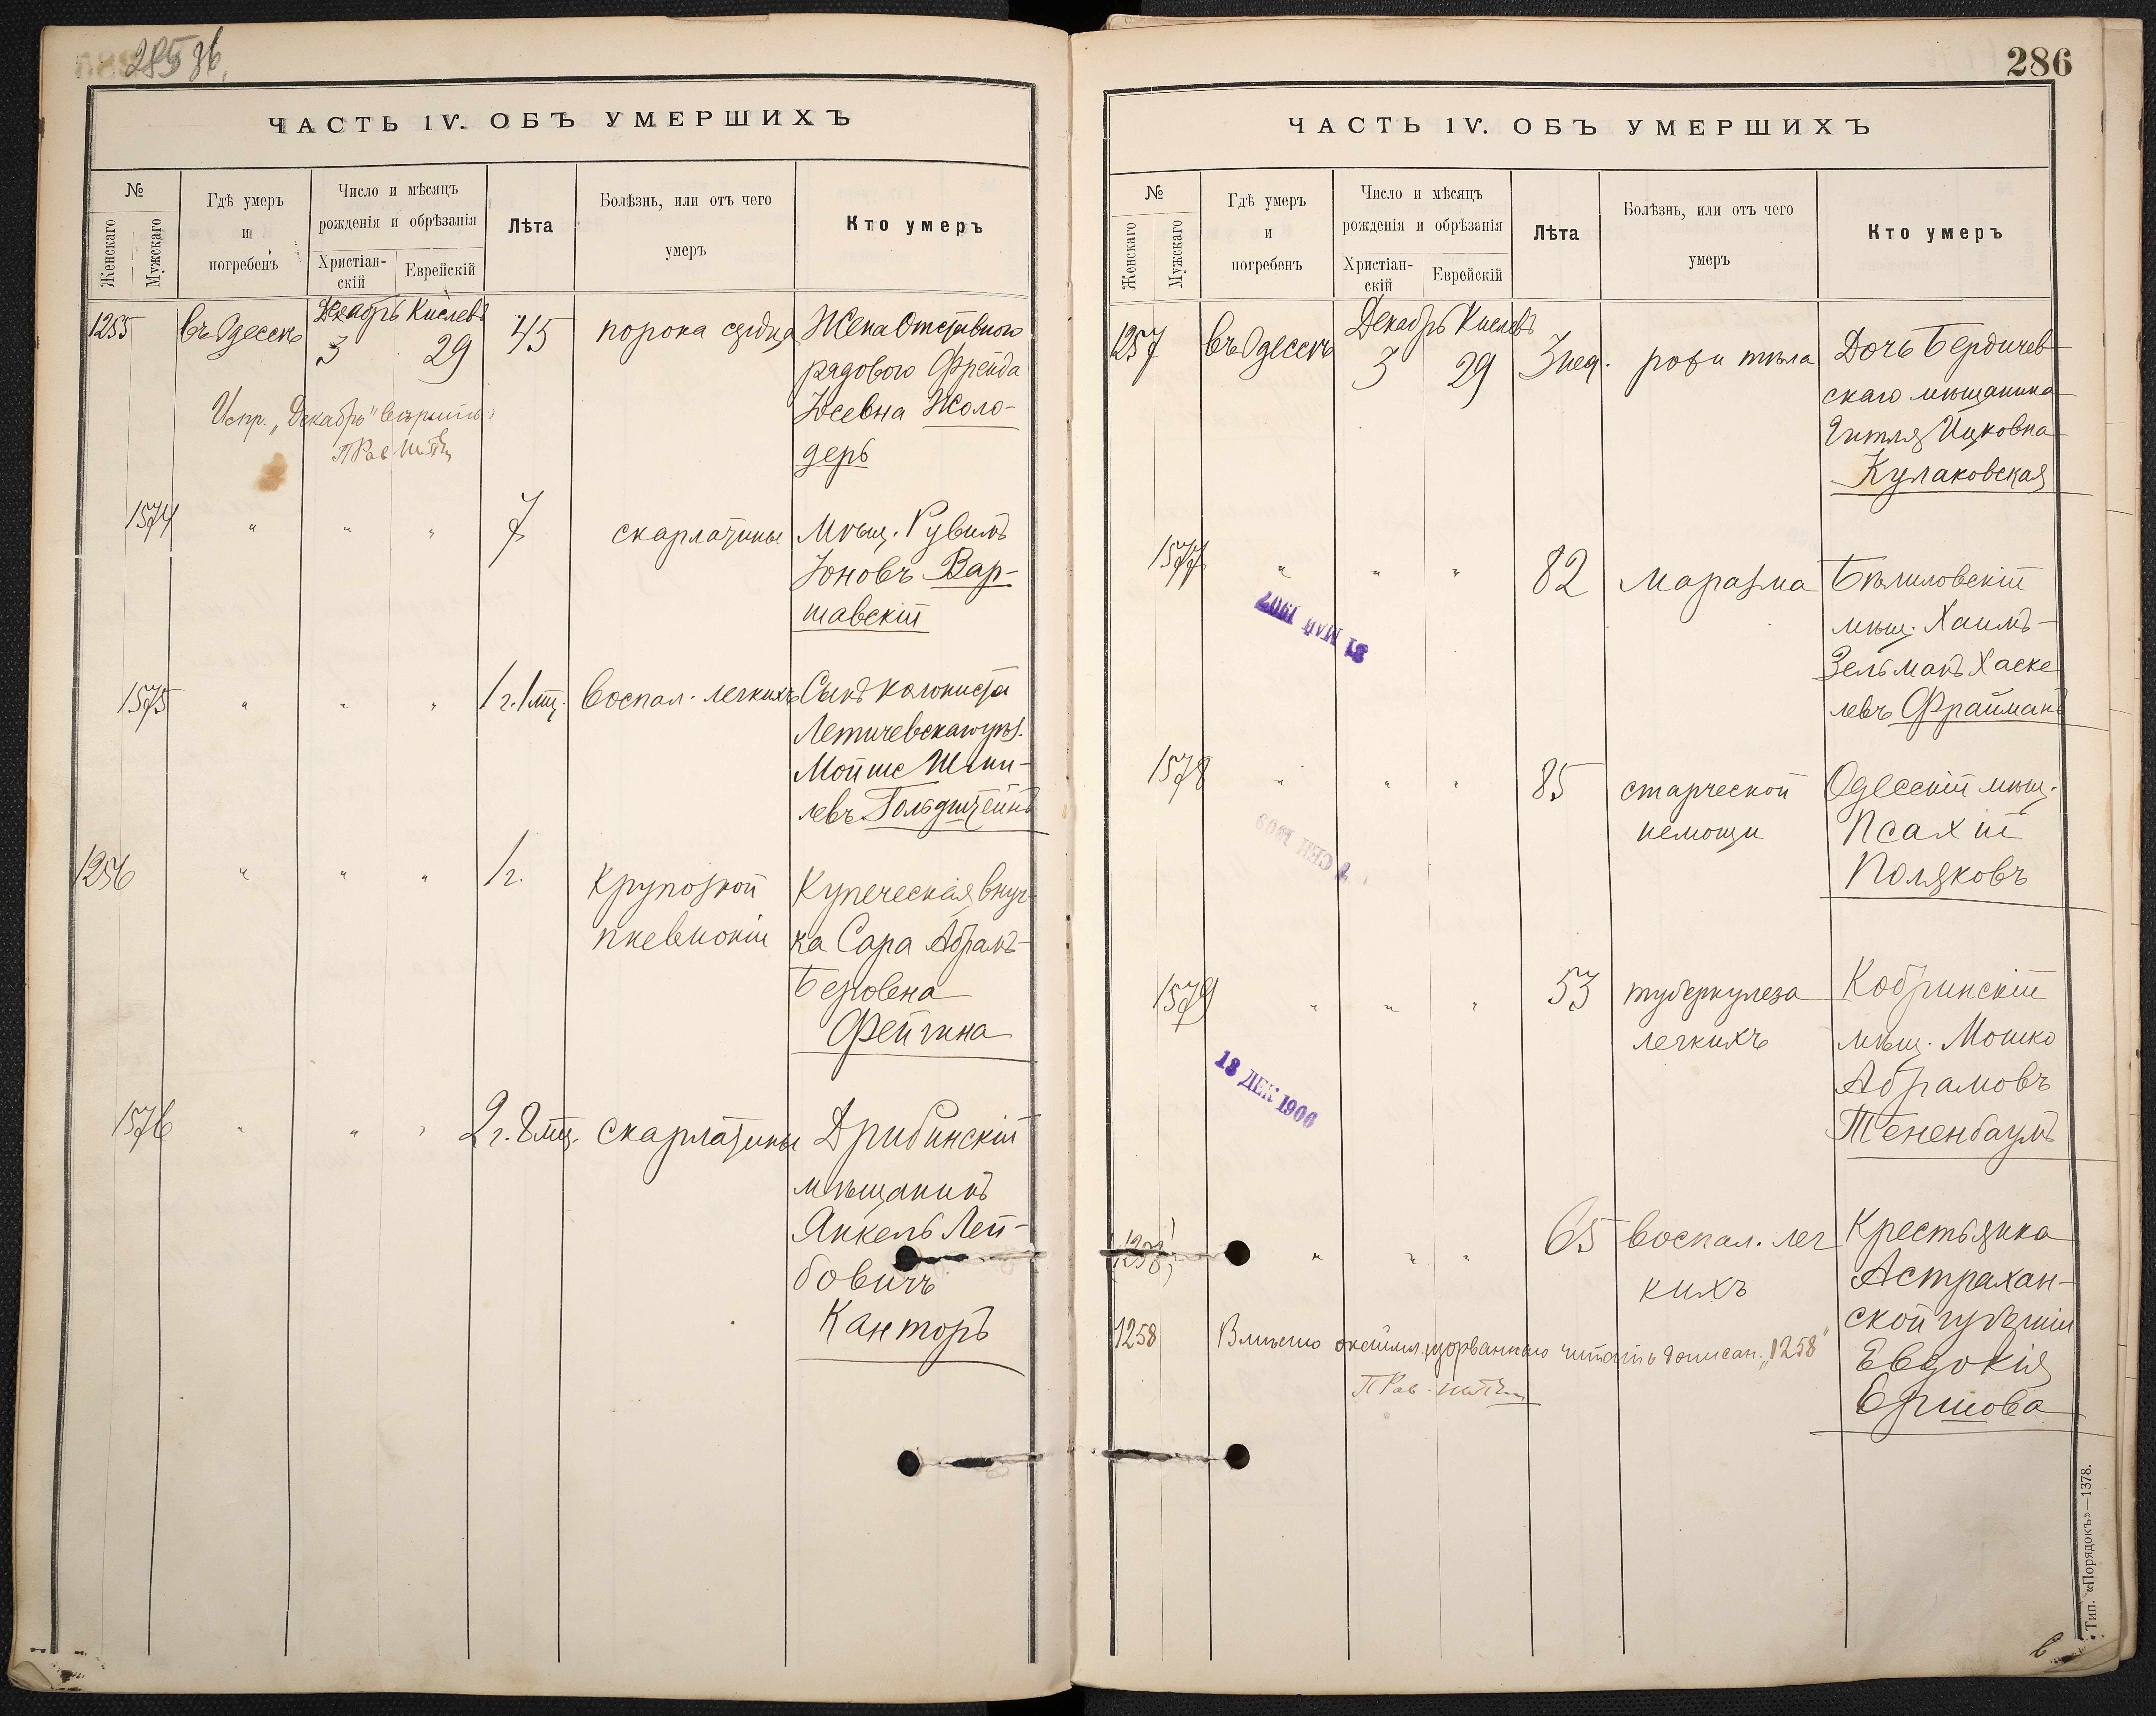 285 об.
ЧАСТЬ IV. ОБЪ УМЕРШИХЪ
№
Женскаго
Мужскаго
Гдѣ умеръ
и
погребенъ
Число и мѣсяцъ
рожденія и обрѣзанія
Христіан-
скій
Еврейскій
Лѣта
Болѣзнь, или отъ чего
умеръ
Кто умеръ
1255 въ Одессѣ Декабрь 3 Кислевъ 29 45 порока сердца Жена Отставного
рядового Фрейда
Іосевна Жоло-
дерь
Испр. „Декабрь" вѣрить:
1574 " " " 7 скарлатины Мѣщ. Рувимъ
Іоновъ Вар-
шавскій
1575 " " " 1 г. 1 мц. Воспал. легкихъ Сынъ колониста
Летичевскаго уѣз.
Мойше
левъ Гольдштейнъ
1256 " " " 1 г. крупозной Купеческая внуч-
пневмоніи ка Сара Абрамъ-
Беровна
Фейгина
1576 " " " 2 г. 8 мц. скарлатины Дрибинскій
мѣщанинъ
Янкель Лей-
бовичъ
Канторъ
286
ЧАСТЬ IV. ОБЪ УМЕРШИХЪ
№
Женскаго
Мужскаго
Гдѣ умеръ
и
погребенъ
Число и мѣсяцъ
рожденія и обрѣзанія
Христіан-
скій
Еврейскій
Лѣта
Болѣзнь, или отъ чего
умеръ
Кто умеръ
1257 въ Одессѣ Декабрь 3 Кислевъ 29 3 нед. рожи тѣла Дочь Бердичев-
скаго мѣщанина
Гитля Ицковна
Кулаковская
1577 " " " 82 маразма Бѣлиловскій
мѣщ. Хаимъ-
Зельманъ Хаске
левъ Фрайманъ
21 МАЙ 1907
1578 " " " 85 старческой Одесскій мѣщ.
немощи Псахій
Поляковъ
СЕН 1908
1579 " " " 53 туберкулеза Кобринскій
легкихъ мѣщ. Мошко
Абрамовъ
Тененбаумъ
13 ДЕК 1906
1258 " " " 65 воспал. лег Крестьянка
кихъ Астрахан-
ской губерніи
Евдокія
Ершова
1258 Вмѣсто прорваннаго читать дописан. „1258"
Тип. «Порядокъ»—1378.